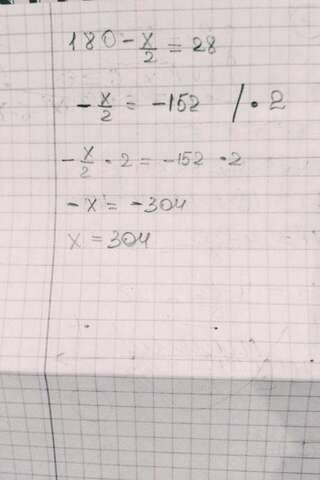 180 - x/2 = 28
- x/2 = -152 /·2
- x/2 · 2 = -152 · 2
- x = -304
x = 304